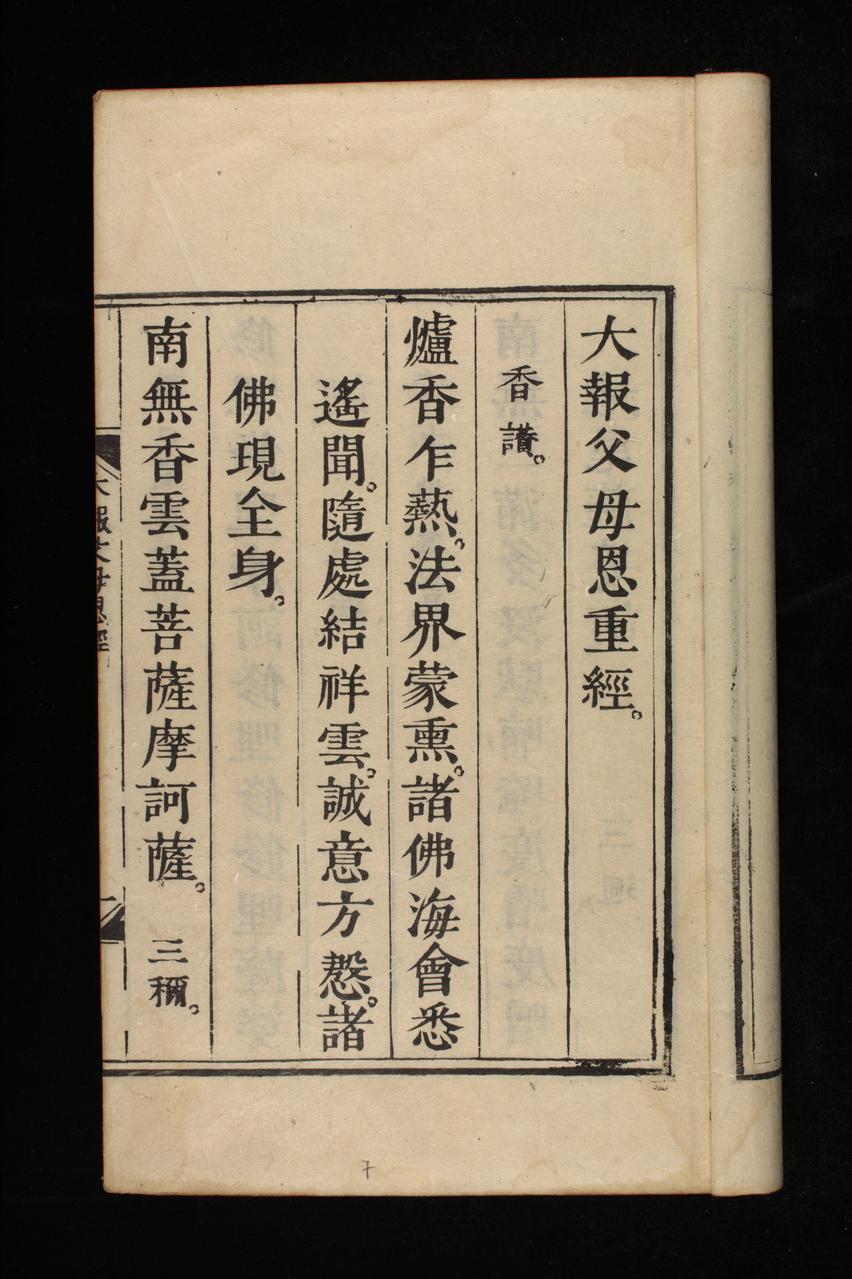 大報父母恩重經。
香讃。
爐香乍熱。法界蒙熏。諸佛海會悉
遙聞。隨處結祥雲。誠意方慇。諸
佛現全身。
南無香雲蓋菩薩摩訶薩。三稱。
大報父母恩經